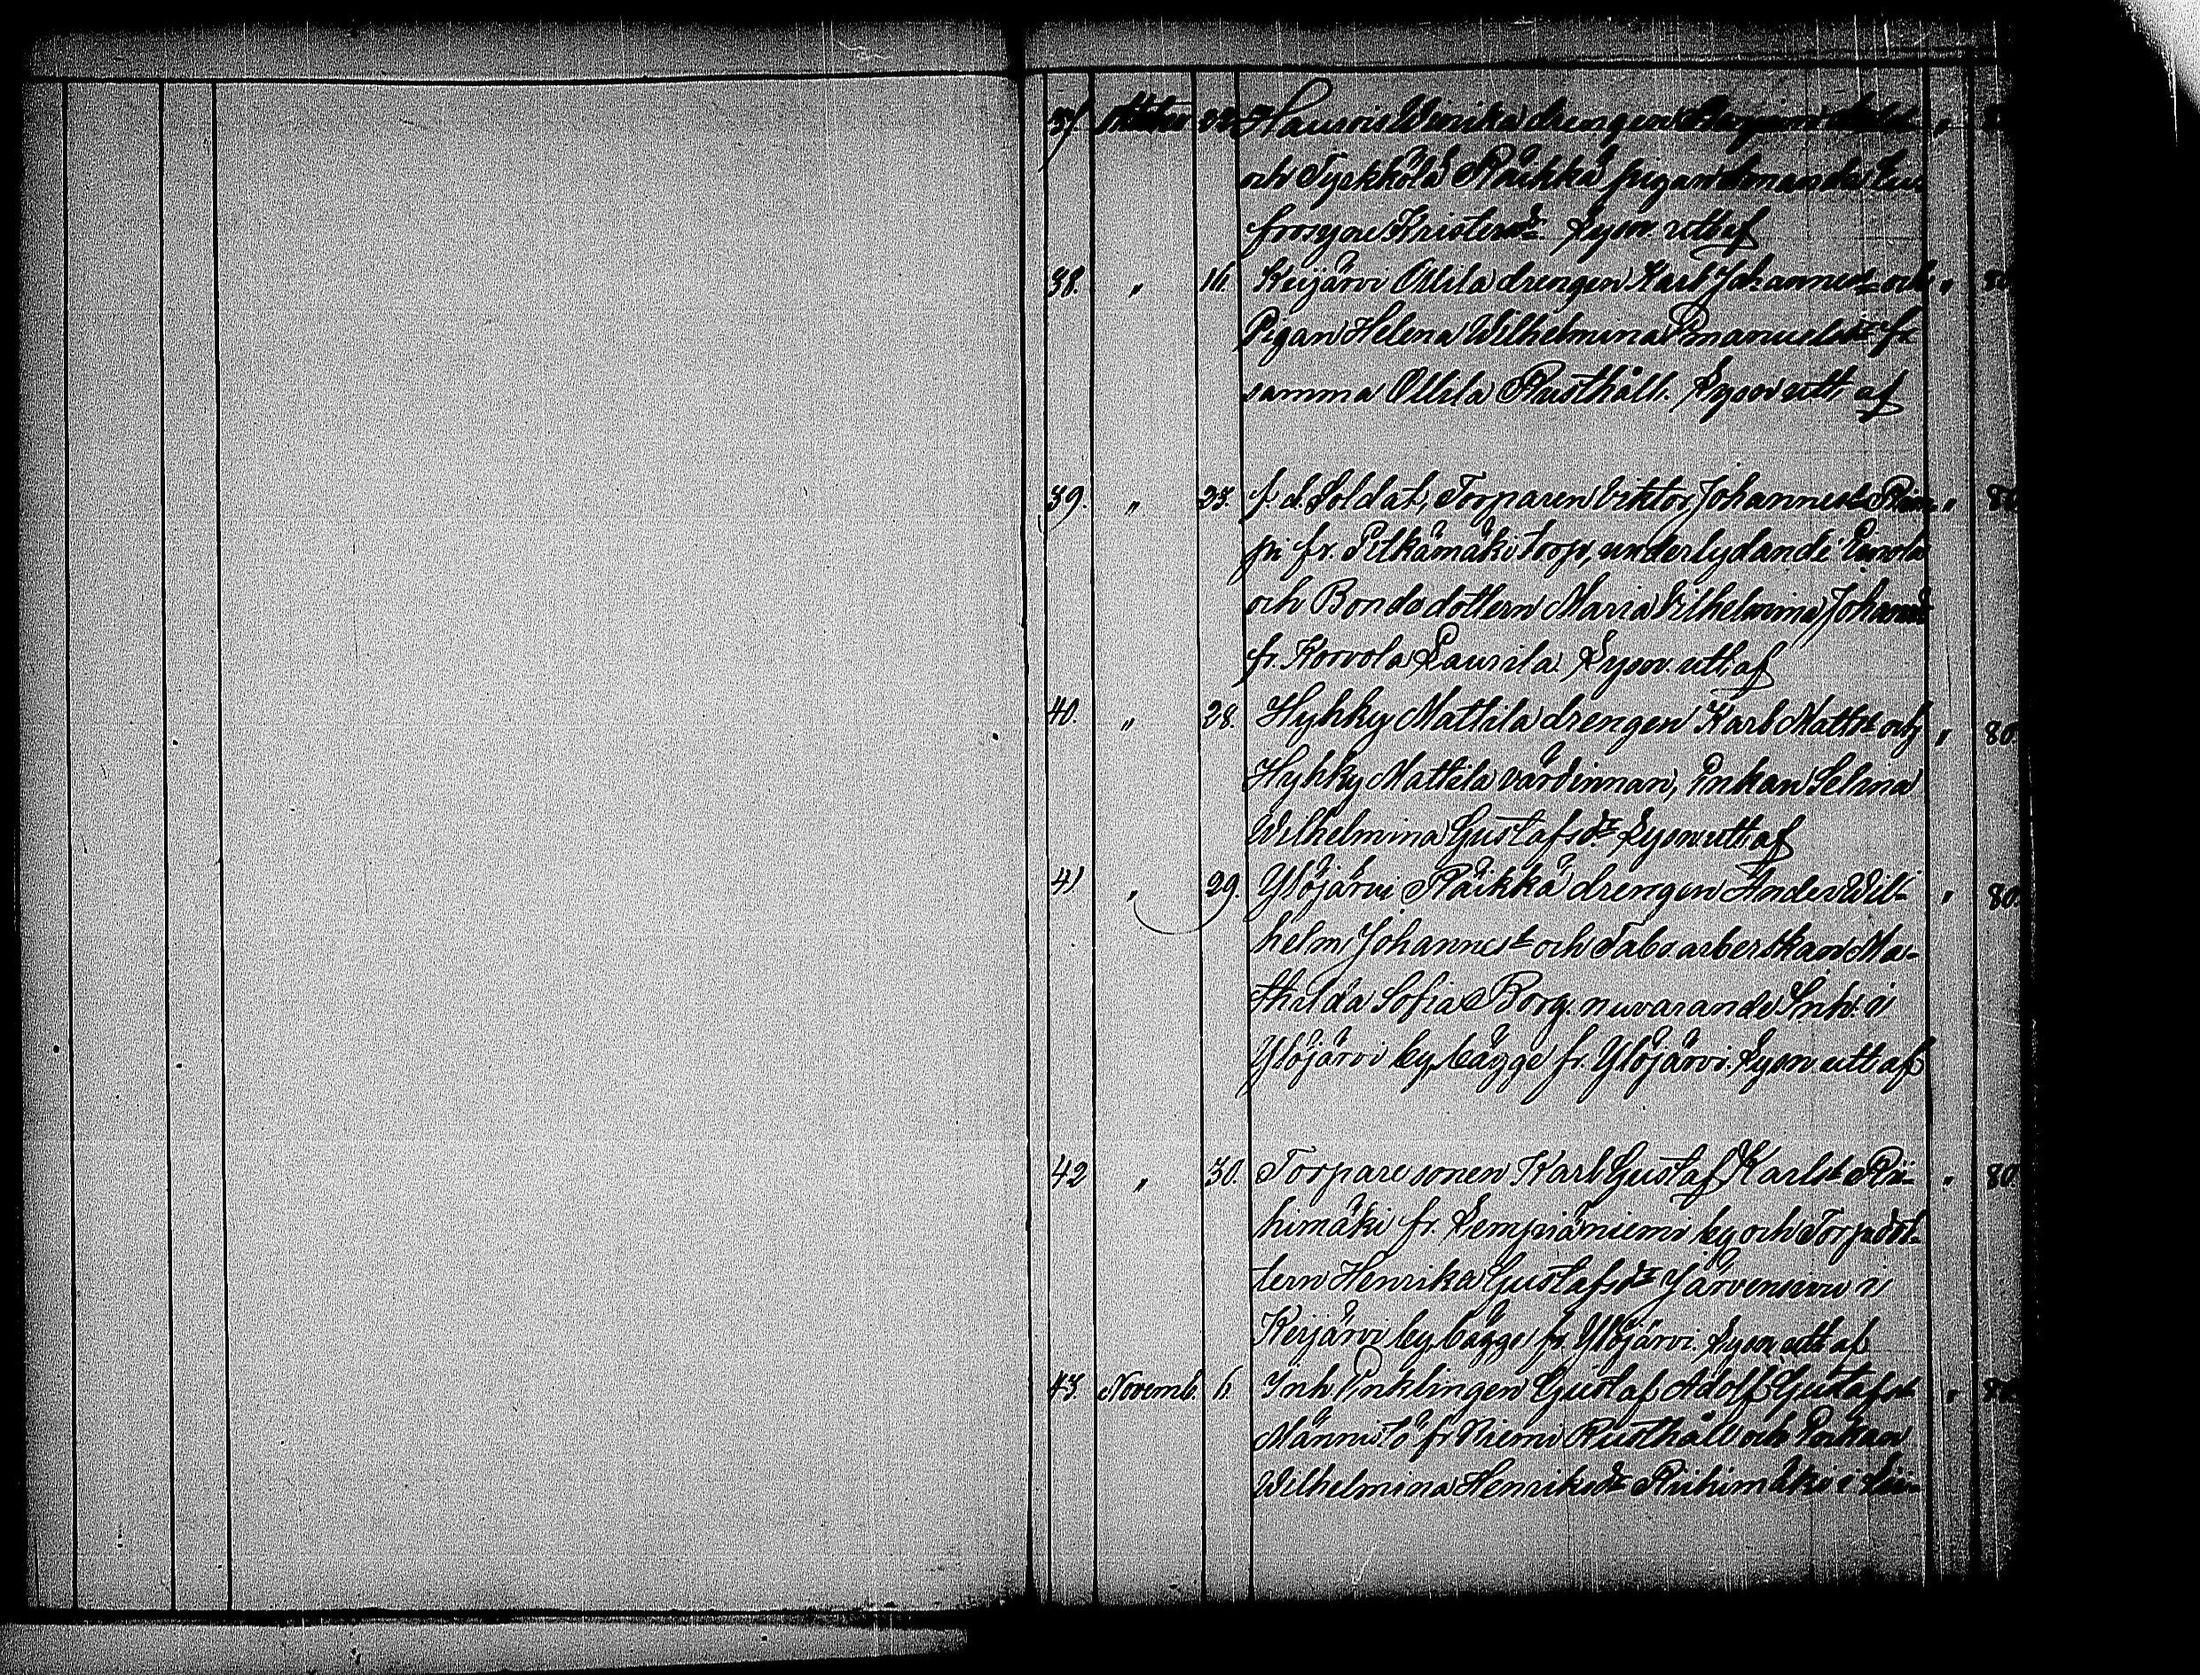 37. Oktober 22. Haunis Winika drengen
och Tyrkkölä Räikkä pigan Amanda Eu-
frosyne Kristersdr. Lysn. utt af
38. " 16. Keijärvi Ollila drengen Karl Johanness. och " 80
Pigan Helena Wilhelmina Emanuelsdr fr
samma Ollila Rusthåll. Lysn utt af
39. " 23. f. d. Soldat, Torparen Viktor Johanness. " 80
pi fr. Pitkämäki torp, underlydande
och Bondedottern Maria Vilhelmina Johansd
fr. Korvola Laurila Lysn. utt af
40. " 28. Hyhky Mattila drengen Karl Matts. och " 80.
Hyhky Mattila värdinnan, Enkan Selma
Wilhelmina Gustafsdr Lysn utt af
41 " 29. Ylöjärvi Räikkä drengen Anders Wil- " 80.
helm Johanness och Fabr. arberskan Ma-
thilda Sofia Borg. nuvarande Inh. i
Ylöjärvi by, bägge fr. Ylöjärvi. Lysn utt af
42 " 30. Torpare sonen Karl Gustaf Karlss. Rii- " 80.
himäki fr. Lempiäniemi by och Torp. dot-
tern Henrika Gustafsdr Järvensuu i
Keijärvi by, bägge fr. Ylöjärvi. Lysn utt af
43. Novemb. 6. Inh. Enklingen Gustaf Adolf Gustafss. " 80.
Männistö fr Niemi Rusthåll och Enkan
Wilhelmina Henriksdr Riihimäki i